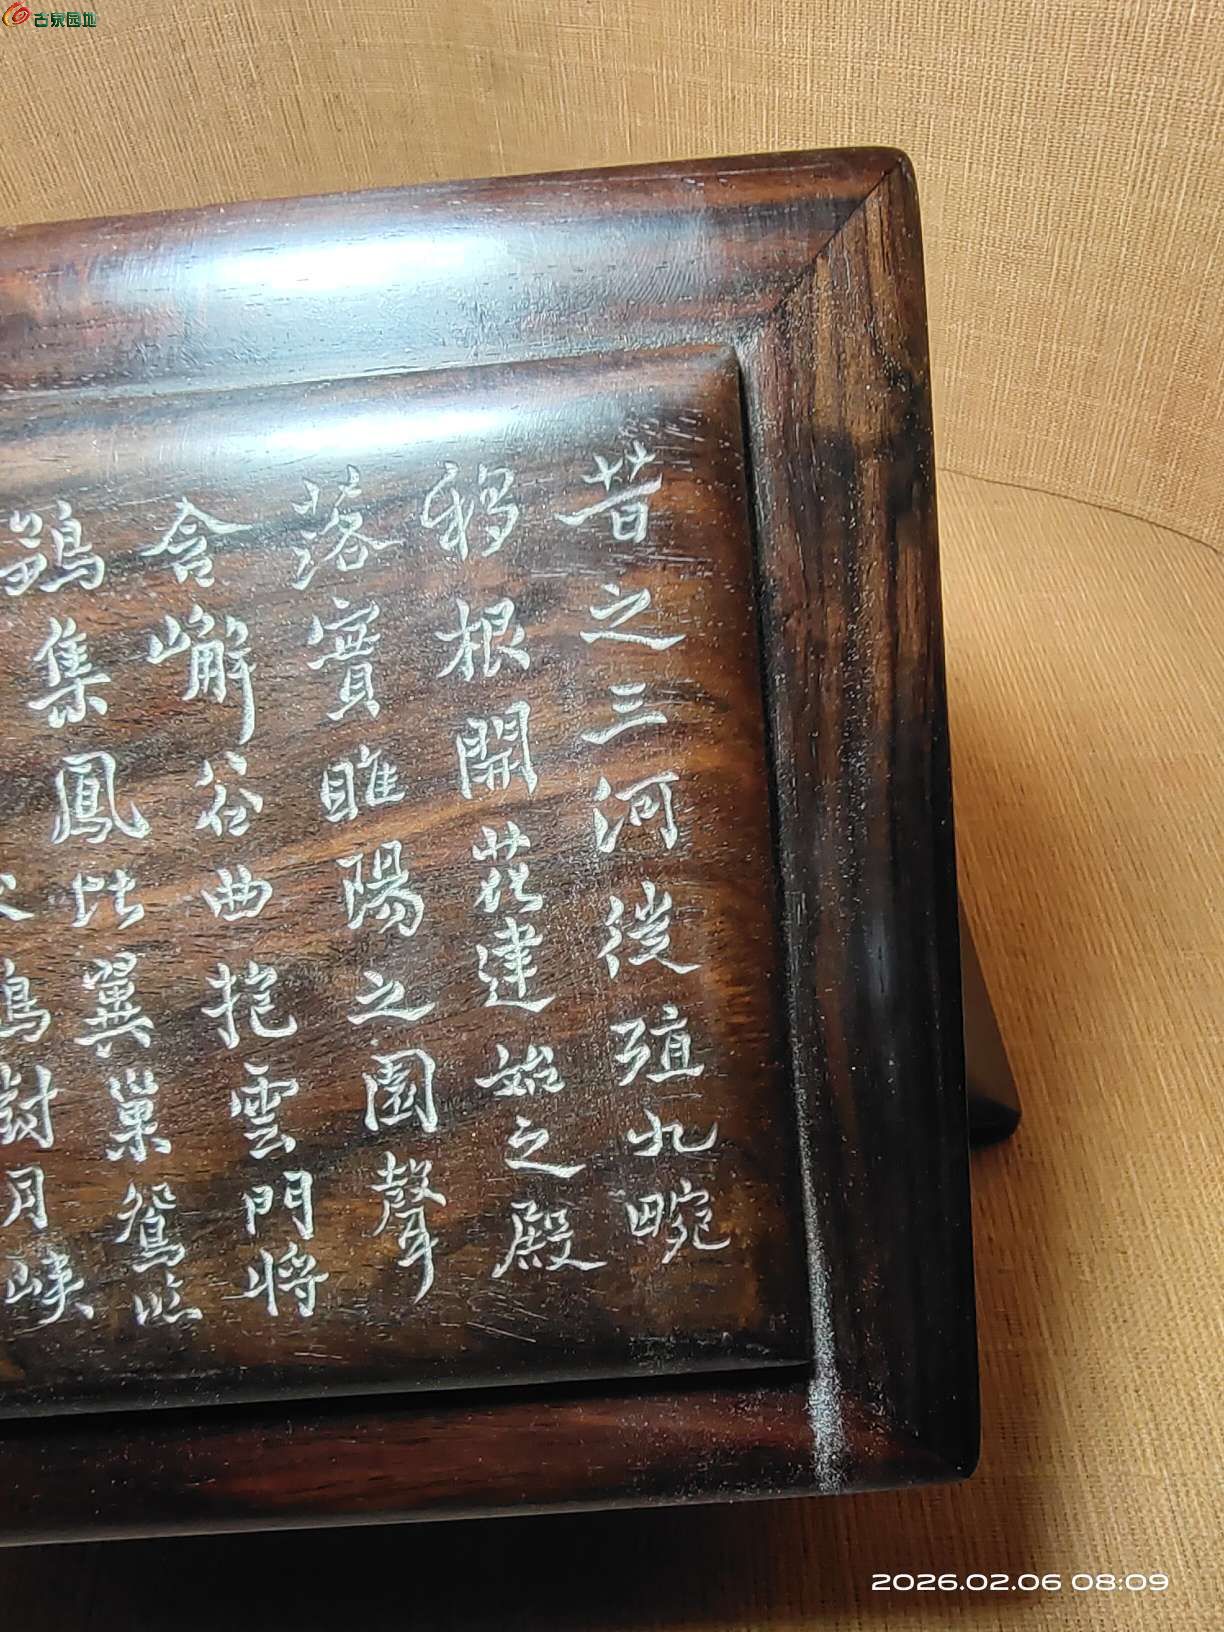 古泉园地
昔之三河徙殖九畹
移根開花建始之殿
落實睢陽之園聲
含嶰谷曲抱雲門將
鶵集鳳比翼巢鴛臨
月峽
2026.02.06 08:09